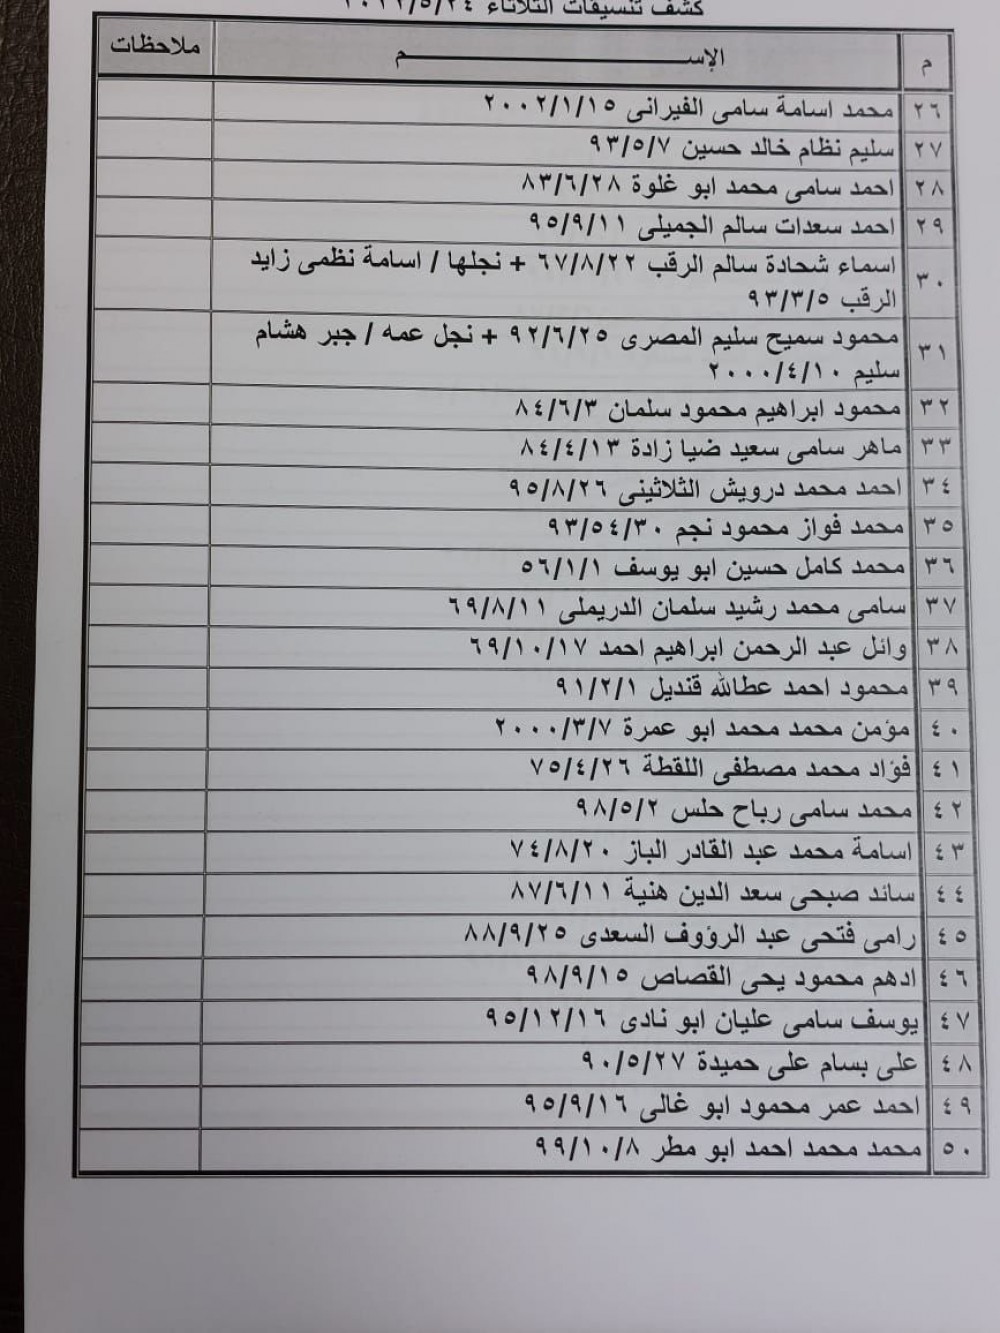 كشف تنسيقات الثلاثاء ٢٠٢٢/٥/٢٤
م الإســـــم ملاحظات
٢٦ محمد اسامة سامى الفيرانى ٢٠٠٢/١/١٥
٢٧ سليم نظام خالد حسين ٩٣/٥/٧
٢٨ احمد سامى محمد ابو غلوة ٨٣/٦/٢٨
٢٩ احمد سعدات سالم الجميلى ٩٥/٩/١١
٣٠ اسماء شحادة سالم الرقب ٦٧/٨/٢٢ + نجلها / اسامة نظمى زايد
الرقب ٩٣/٣/٥
٣١ محمود سميح سليم المصرى ٩٢/٦/٢٥ + نجل عمه / جبر هشام
سليم ٢٠٠٠/٤/١٠
٣٢ محمود ابراهيم محمود سلمان ٨٤/٦/٣
٣٣ ماهر سامى سعيد ضيا زادة ٨٤/٤/١٣
٣٤ احمد محمد درويش الثلاثينى ٩٥/٨/٢٦
٣٥ محمد فواز محمود نجم ٩٣/٥٤/٣٠
٣٦ محمد كامل حسين ابو يوسف ٥٦/١/١
٣٧ سامى محمد رشيد سلمان الدريملى ٦٩/٨/١١
٣٨ وائل عبد الرحمن ابراهيم احمد ٦٩/١٠/١٧
٣٩ محمود احمد عطالله قنديل ٩١/٢/١
٤٠ مؤمن محمد محمد ابو عمرة ٢٠٠٠/٣/٧
٤١ فؤاد محمد مصطفى اللقطة ٧٥/٤/٢٦
٤٢ محمد سامى رباح حلس ٩٨/٥/٢
٤٣ اسامة محمد عبد القادر الباز ٧٤/٨/٢٠
٤٤ سائد صبحى سعد الدين هنية ٨٧/٦/١١
٤٥ رامى فتحى عبد الرؤوف السعدى ٨٨/٩/٢٥
٤٦ ادهم محمود يحى القصاص ٩٨/٩/١٥
٤٧ يوسف سامى عليان ابو نادى ٩٥/١٢/١٦
٤٨ على بسام على حميدة ٩٠/٥/٢٧
٤٩ احمد عمر محمود ابو غالى ٩٥/٩/١٦
٥٠ محمد محمد احمد ابو مطر ٩٩/١٠/٨